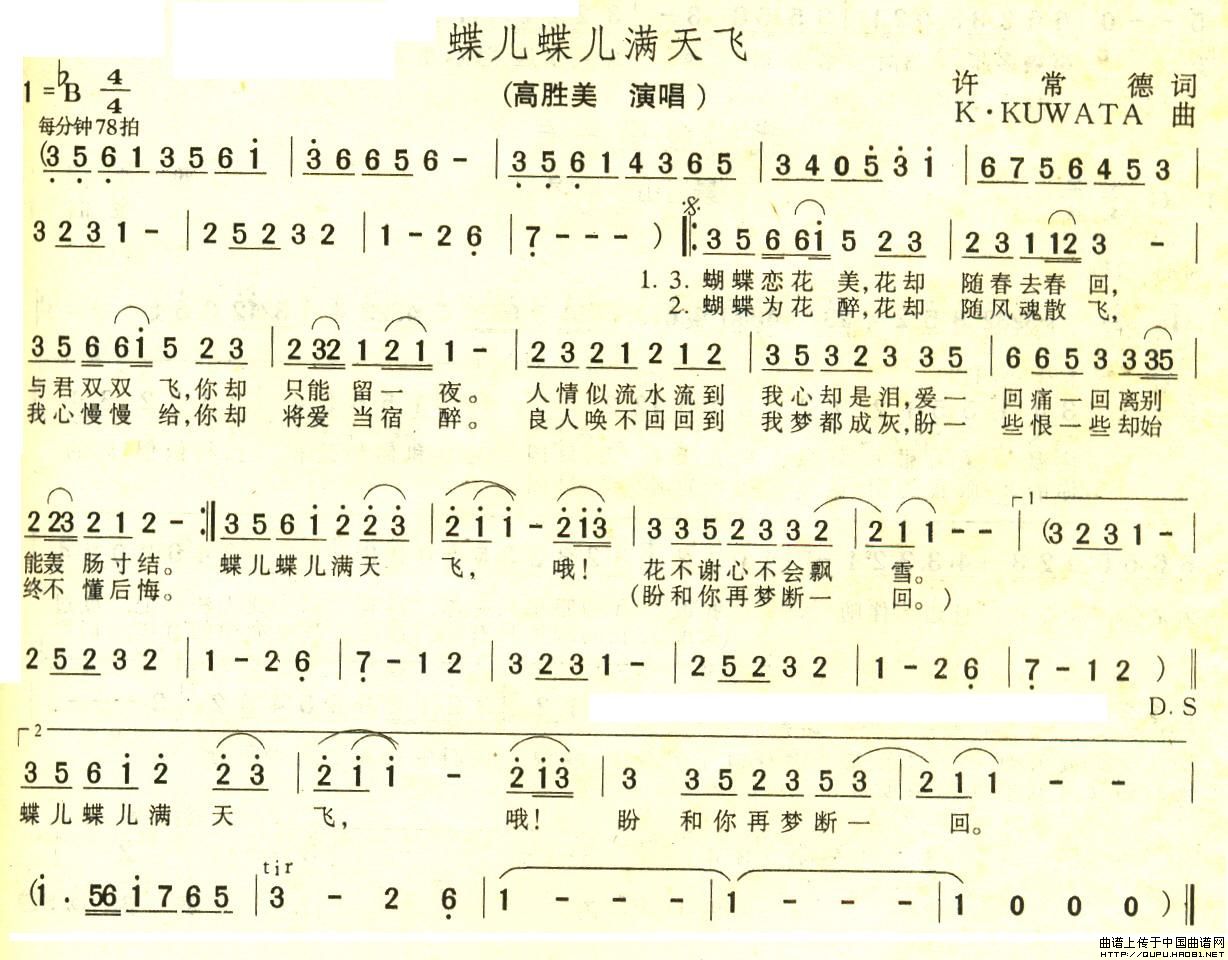 蝶儿蝶儿满天飞
(高胜美 演唱)
1=♭B 4/4
许 常 德 词
K·KUWATA 曲
每分钟78拍
(3 5 6 1 3 5 6 i | 3 6 6 5 6 - | 3 5 6 1 4 3 6 5 | 3 4 0 5 3 i | 6 7 5 6 4 5 3 |
3 2 3 1 - | 2 5 2 3 2 | 1 - 2 6 | 7 - - - ) ‖: 3 5 6 6 i 5 2 3 | 2 3 1 1 2 3 - |
1. 3. 蝴蝶恋花 美,花却 随春去春 回,
2. 蝴蝶为花 醉,花却 随风魂散 飞,
3 5 6 6 i 5 2 3 | 2 3 2 1 2 1 1 - | 2 3 2 1 2 1 2 | 3 5 3 2 3 3 5 | 6 6 5 3 3 3 5 |
与君双双 飞,你却 只能 留一 夜。 人情似流水流到 我心却是泪,爱一 回痛一回离别
我心慢慢 给,你却 将爱 当宿 醉。 良人唤不回回到 我梦都成灰,盼一 些恨一些却始
2 2 3 2 1 2 - :‖ 3 5 6 i 2 2 3 | 2 i i - 2 i 3 | 3 3 5 2 3 3 2 | 2 1 1 - - | 1 (3 2 3 1 - |
能轰 肠寸结。 蝶儿蝶儿满天 飞, 哦! 花不谢心不会飘 雪。
终不 懂后悔。 (盼和你再梦断一 回。)
2 5 2 3 2 | 1 - 2 6 | 7 - 1 2 | 3 2 3 1 - | 2 5 2 3 2 | 1 - 2 6 | 7 - 1 2 ) ‖
D. S
2
3 5 6 i 2 2 3 | 2 i i - 2 i 3 | 3 3 5 2 3 5 3 | 2 1 1 - - |
蝶儿蝶儿满 天 飞, 哦! 盼 和你再梦断一 回。
tir
(i . 5 6 i 7 6 5 | 3 - 2 6 | 1 - - - | 1 - - - | 1 0 0 0 ) ‖
曲谱上传于中国曲谱网
HTTP://QUPU.HAO81.NET